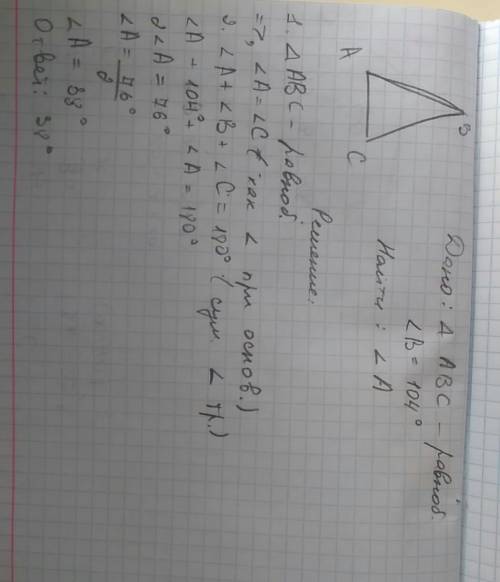 Дано: Δ ABC - равноб.
∠B = 104°
Найти: ∠A
A
B
C
Решение:
1. Δ ABC - равноб.
=>, ∠A = ∠C (как ∠ при основ.)
2. ∠A + ∠B + ∠C = 180° (сум ∠ тр.)
∠A - 104° + ∠A = 180°
2∠A = 76°
∠A = 76°/2
∠A = 38°
Ответ: 38°